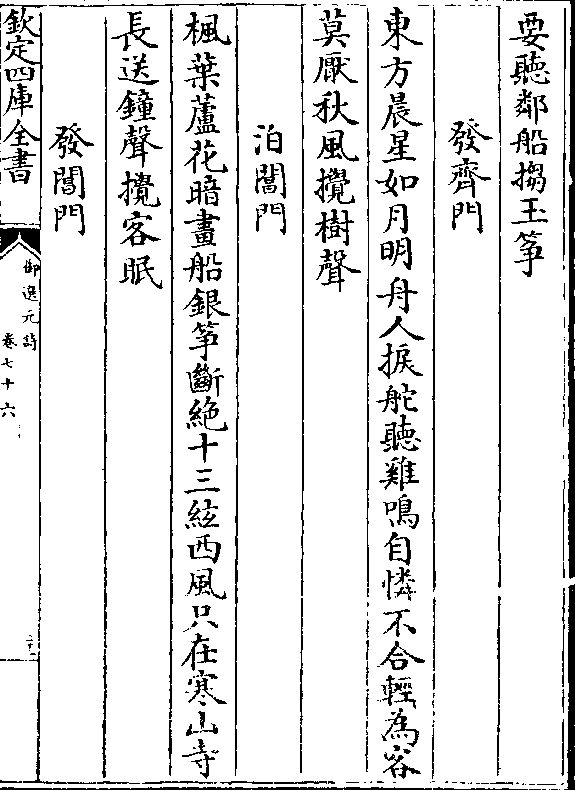 要聽鄰船搊玉筝
發齊門
東方晨星如月明舟人捩舵聽雞鳴自憐不合輕為客
莫厭秋風攪樹聲
泊閶門
楓葉蘆花暗畫船銀筝斷絶十三絃西風只在寒山寺
長送鐘聲攪客眠
發閶門
欽定四庫全書
御選元詩
卷七十六